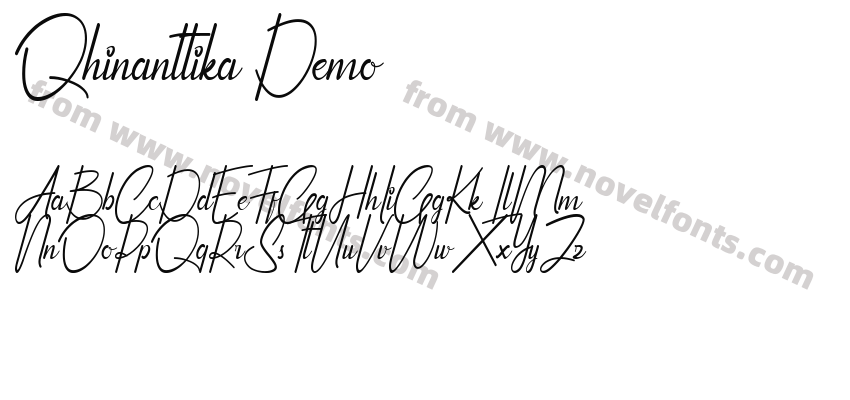 Qhinanttika Demo
from www.novelfonts.com
from www.novelfonts.com
AaBbCcDdEeFfGgHhIiGgKkLlMm
NnOoPpQqRrSsTtUuVvWwXxYyZz